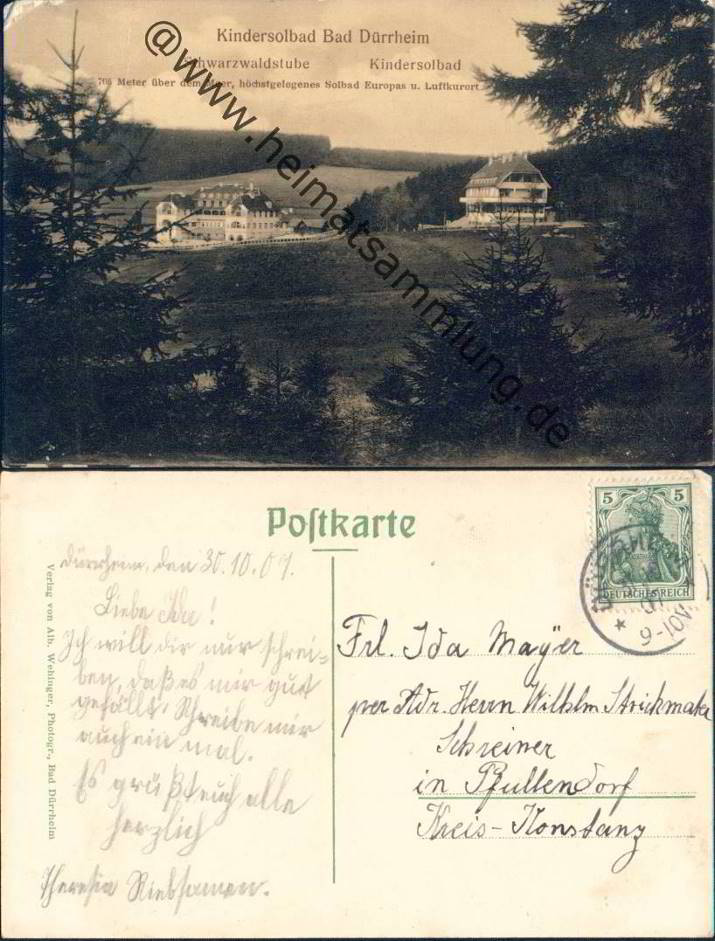 Kindersolbad Bad Dürrheim
Schwarzwaldstube Kindersolbad
706 Meter über dem Meer, höchstgelegenes Solbad Europas u. Luftkurort.
@www.heimatsammlung.de
Postkarte
5 5
DEUTSCHES REICH
9-10V.
Dürrheim, den 30.10.07.
Liebe Ida!
Ich will dir nur schrei=
ben, daß es mir gut
gefällt. Schreibe mir
auch ein mal.
Es grüßt euch alle
herzlich
Theresia Riebsamen.
Frl. Ida Mayer
per Adr. Herrn Wilhlm Strickmaker
Schreiner
in Pfullendorf
Kreis-Konstanz
Verlag von Alb. Wehinger, Photogr., Bad Dürrheim